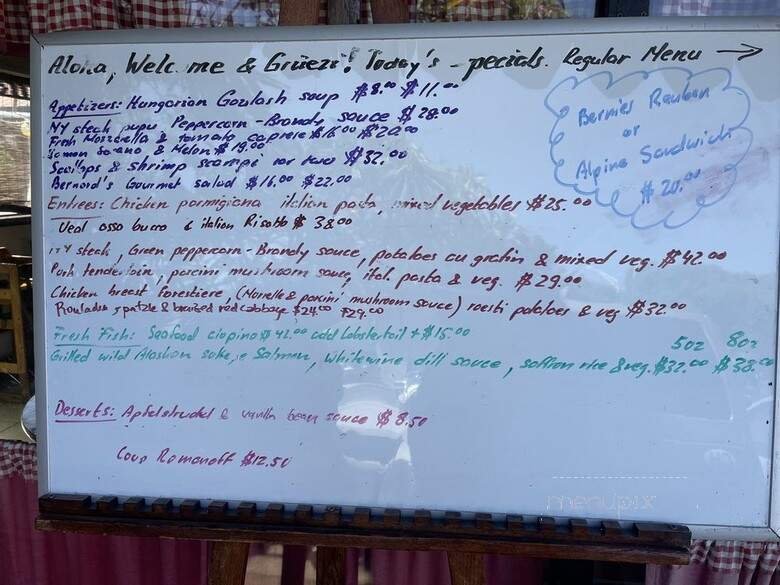 Aloha, Welc me & Grüezi! Today's pecials. Regular Menu →
Appetizers: Hungarian Goulash soup $8.00 $11.00
NY steak pupu Peppercorn-Brandy sauce $28.00
Fresh Mozzarella & tomato caprese $16.00 $20.00
& Melon $19.00
Scallops & shrimp scampi for two $32.00
Bernard's Gourmet salad $16.00 $22.00
Bernies Reuben
or
Alpine Sandwich
$20.00
Entrees: Chicken parmigiana italian pasta, mixed vegetables $25.00
Veal osso bucco & italian Risotto $38.00
NY steak, Green peppercorn-Brandy sauce, potatoes au gratin & mixed veg. $42.00
Pork tenderloin, porcini mushroom sauce, ital. pasta & veg. $29.00
Chicken breast Forestiere, (Morelle & porcini mushroom sauce) roesti potatoes & veg $32.00
Rouladen spatzle & braised red cabbage $24.00 $29.00
Fresh Fish: Seafood ciopino $42.00 add Lobstertail + $15.00
5oz 8oz
Grilled wild Alaskan Salmon, whitewine dill sauce, saffron rice & veg. $32.00 $38.00
Desserts: Apfelstrudel & vanilla bean sauce $8.50
Coup Romanoff $12.50
menupix